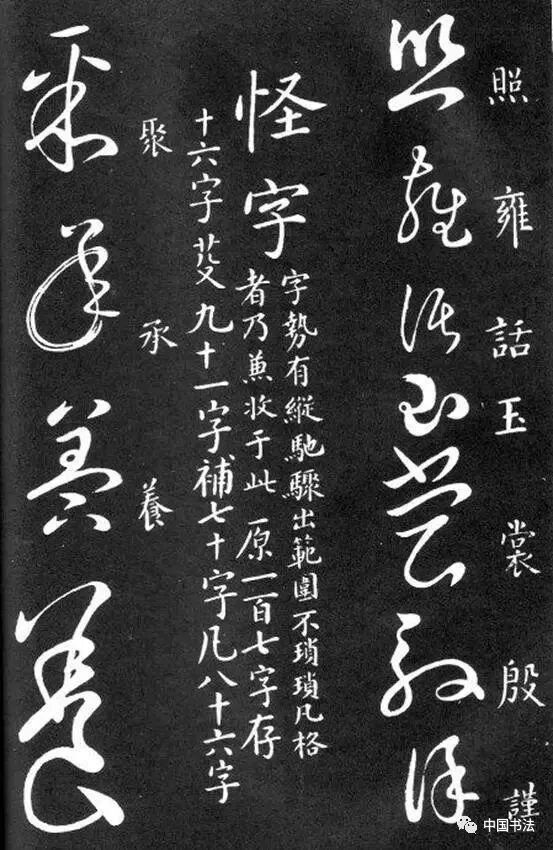 照雍話玉裳殷謹
照雍話玉裳殷謹
怪字
字勢有縱馳驟出範圍不瑣瑣凡格
者乃兼收于此 原一百七字存
十六字芟九十一字補七十字凡八十六字
聚承養
聚承養養
中国书法